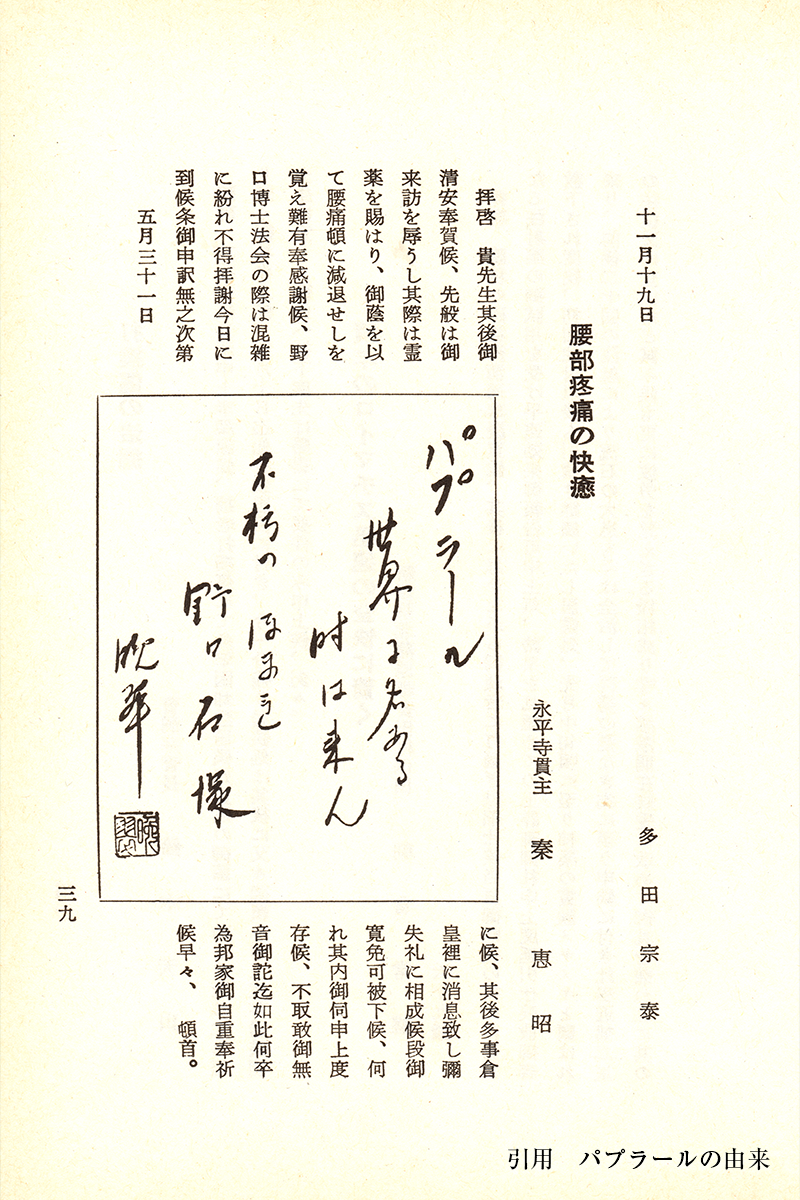 十一月十九日
多田宗泰
腰部疼痛の快癒
永平寺貫主　秦　恵昭
拝啓　貴先生其後御
清安奉賀候、先般は御
来訪を辱うし其際は霊
薬を賜はり、御蔭を以
て腰痛頓に減退せしを
覚え難有奉感謝候、野
口博士法会の際は混雑
に紛れ不得拝謝今日に
到候条御申訳無之次第
に候、其後多事倉
皇裡に消息致し彌
失礼に相成候段御
寛免可被下候、何
れ其内御伺申上度
存候、不取敢御無
音御詫迄如此何卒
為邦家御自重奉祈
候早々、　頓首。
五月三十一日
パプラール
世界に名ある
時は来ん
不朽の　ほまれ
野口　石塚
晩翠
三九
引用　パプラールの由来